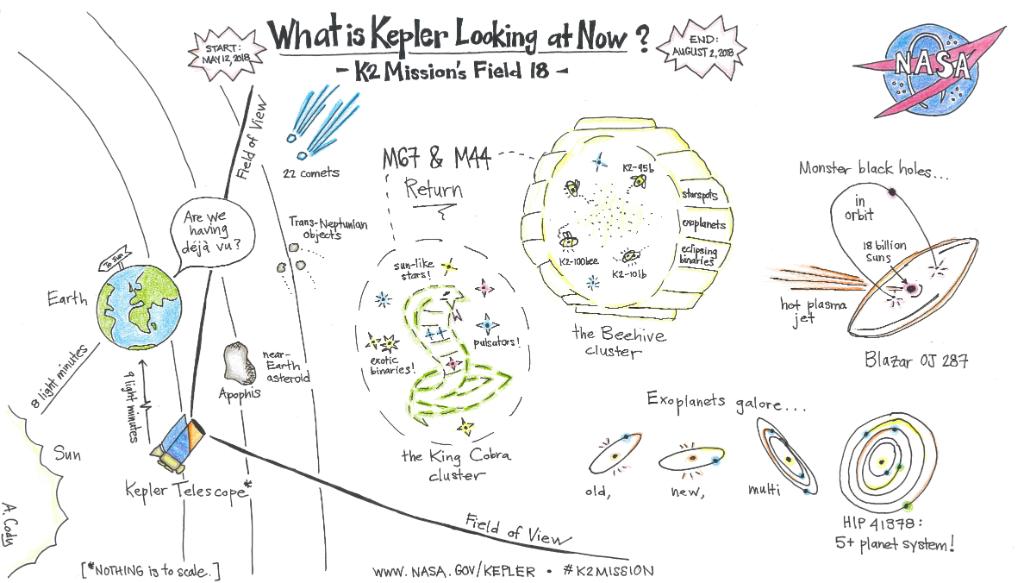 START:
MAY 12, 2018
What is Kepler Looking at Now?
- K2 Mission's Field 18 -
END:
AUGUST 2, 2018
NASA
Field of View
22 comets
M67 & M44
Return
Are we
having
déjà vu?
To Sun
Earth
Trans-Neptunian
objects
8 light minutes
9 light minutes
near-
Earth
asteroid
Apophis
Sun
Kepler Telescope*
sun-like
stars!
pulsators!
exotic
binaries!
the King Cobra
cluster
K2-95b
K2-100bee
K2-101b
starspots
exoplanets
eclipsing
binaries
the Beehive
cluster
Monster black holes...
in
orbit
18 billion
suns
hot plasma
jet
Blazar OJ 287
Exoplanets galore...
old,
new,
multi
HIP 41378:
5+ planet system!
Field of View
A. Cody
[*NOTHING is to scale.]
WWW.NASA.GOV/KEPLER • #K2MISSION